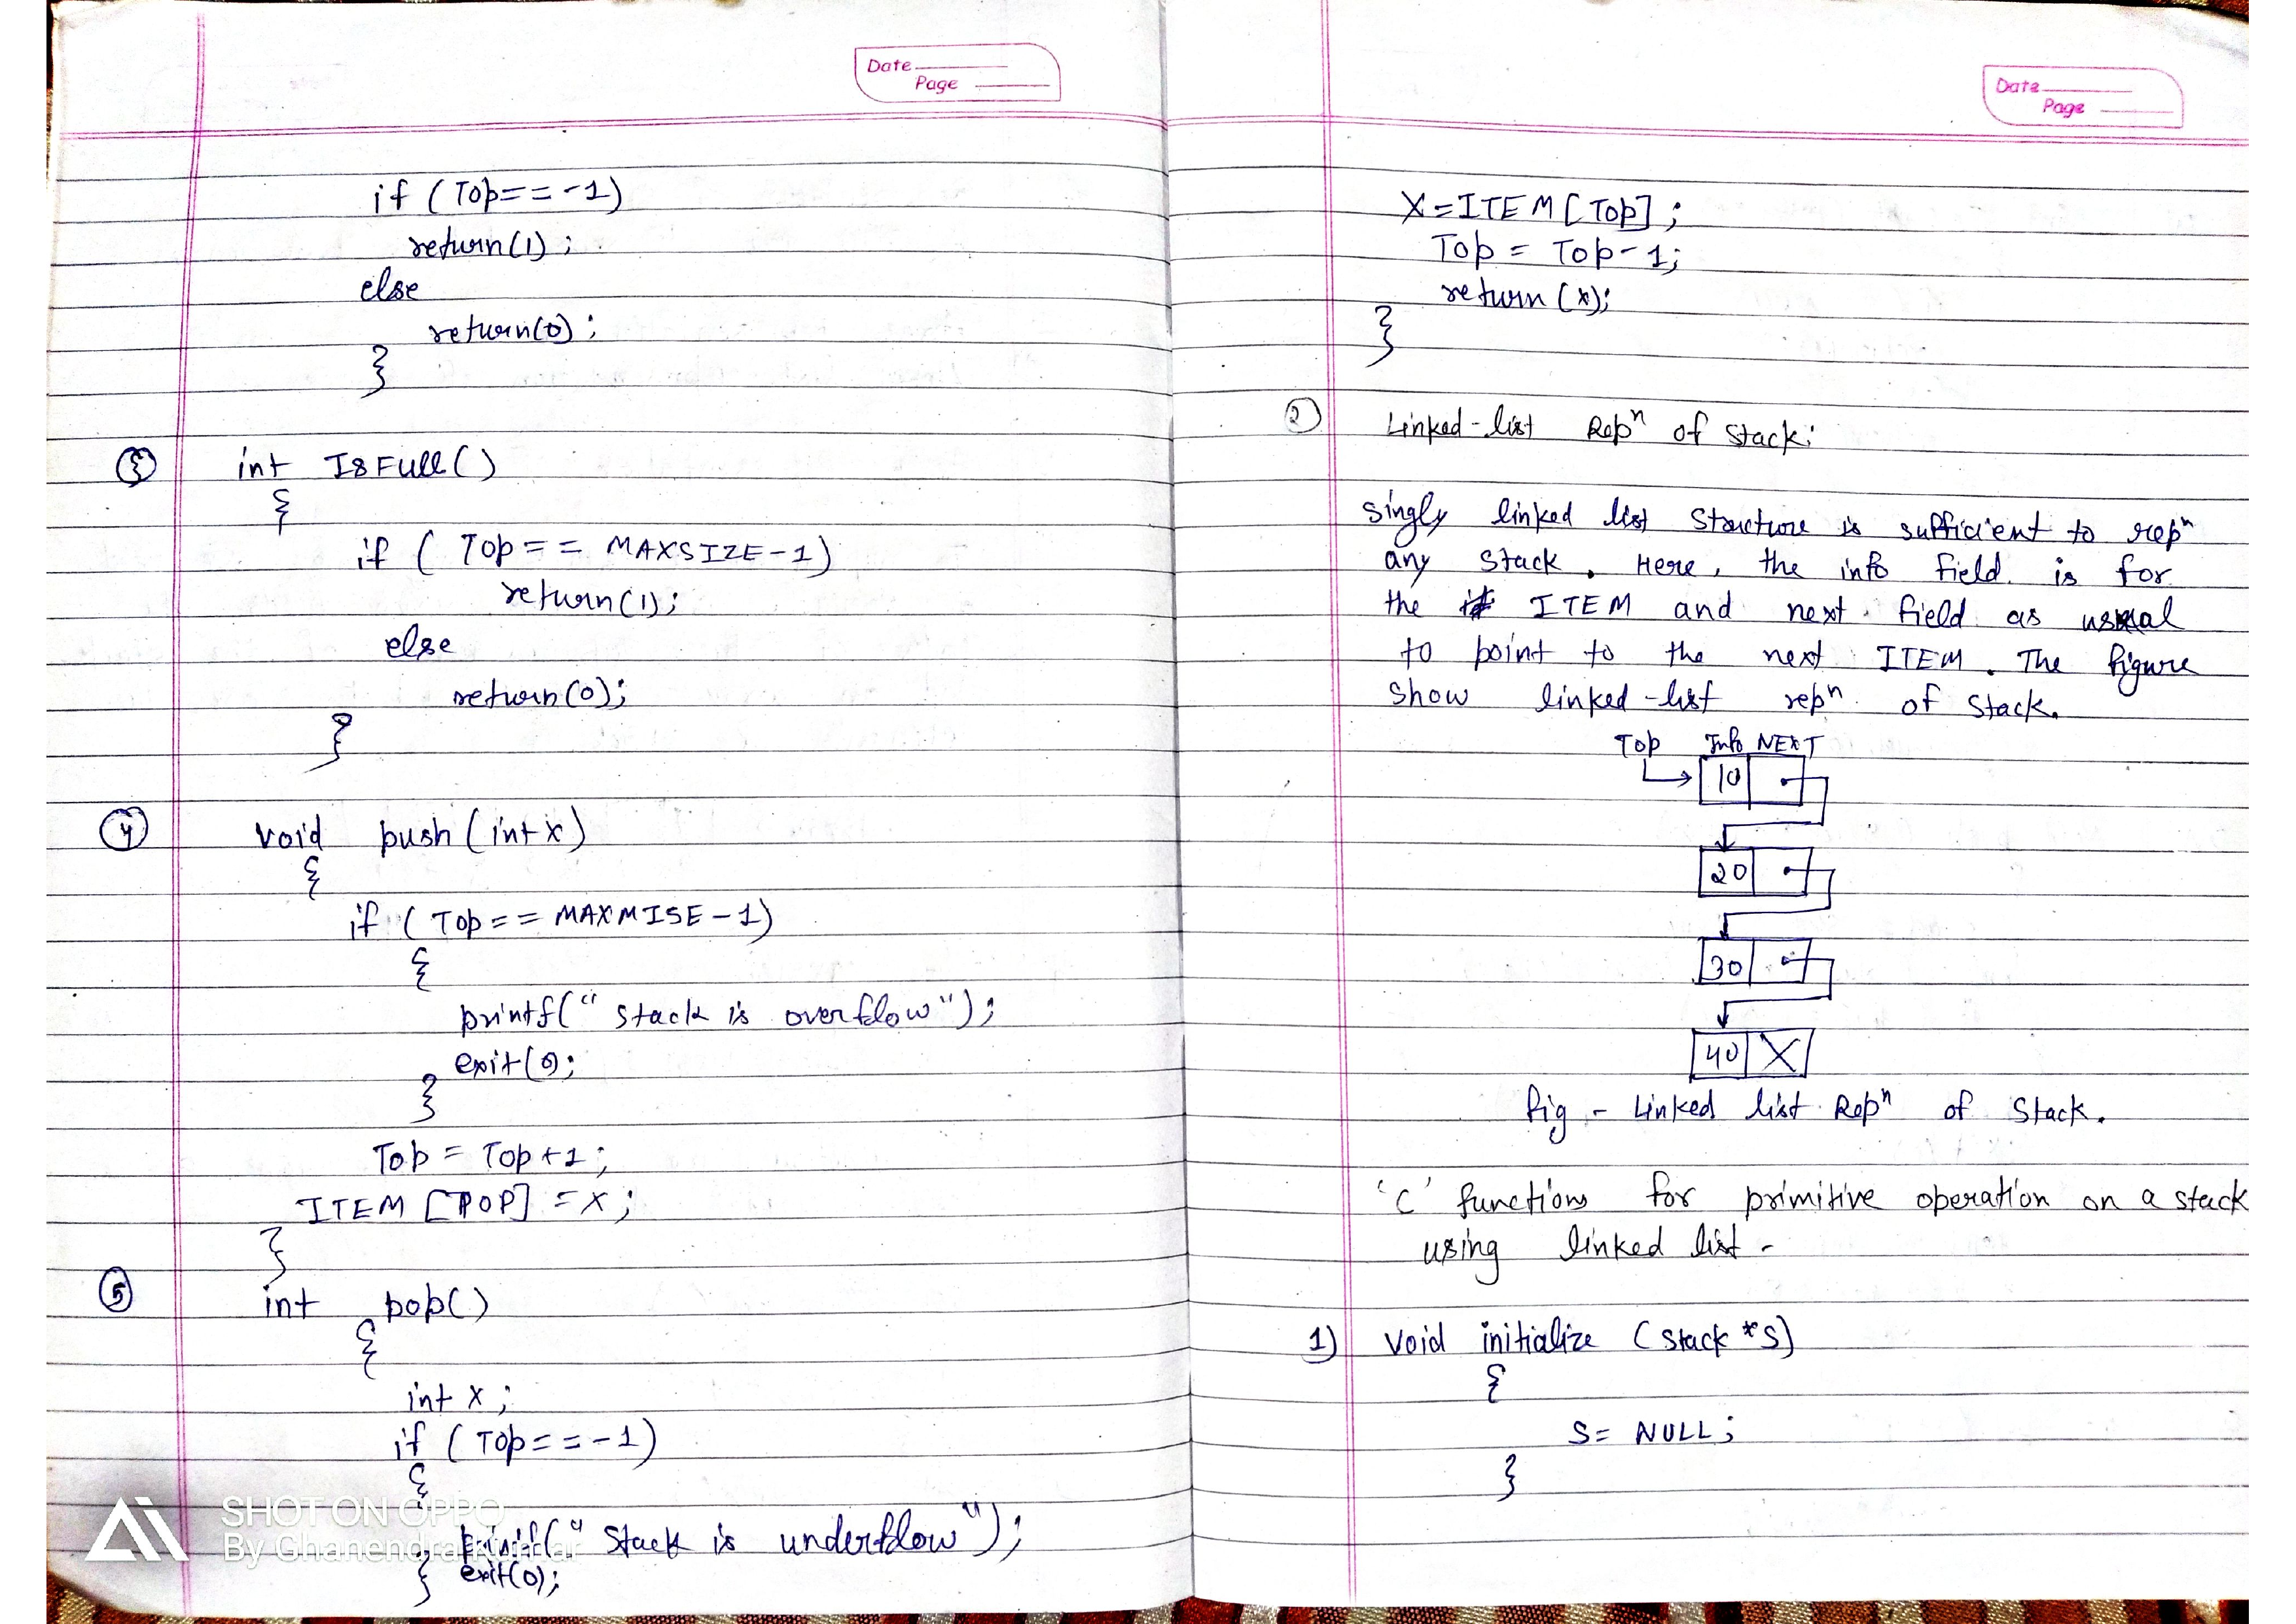 Date
Page
if (Top==-1)
return(1);
else
return(0);
}
3 int ISFULL()
{
if ( Top == MAXSIZE-1)
return(1);
else
return(0);
}
4 void push (int x)
{
if (Top == MAXMISE-1)
{
printf(" stack is overflow");
exit(0);
}
Top = Top+1;
ITEM [TOP] = X;
}
5 int pop()
{
int x;
if (Top==-1)
{
printf(" Stack is underflow");
} exit(0);
SHOT ON OPPO
By Ghanendra Kumar
Date
Page
X=ITEM[Top];
Top = Top-1;
return (x);
}
2 Linked-list Repⁿ of stack:
Singly linked list structure is sufficient to repⁿ
any stack. Here, the info field is for
the ITEM and next field as usual
to point to the next ITEM. The figure
show linked-list repⁿ of stack.
Top Info NEXT
10
20
30
40 X
fig - Linked list Repⁿ of Stack.
'C' functions for primitive operation on a stack
using linked list -
1) void initialize (stack *S)
{
S= NULL;
}